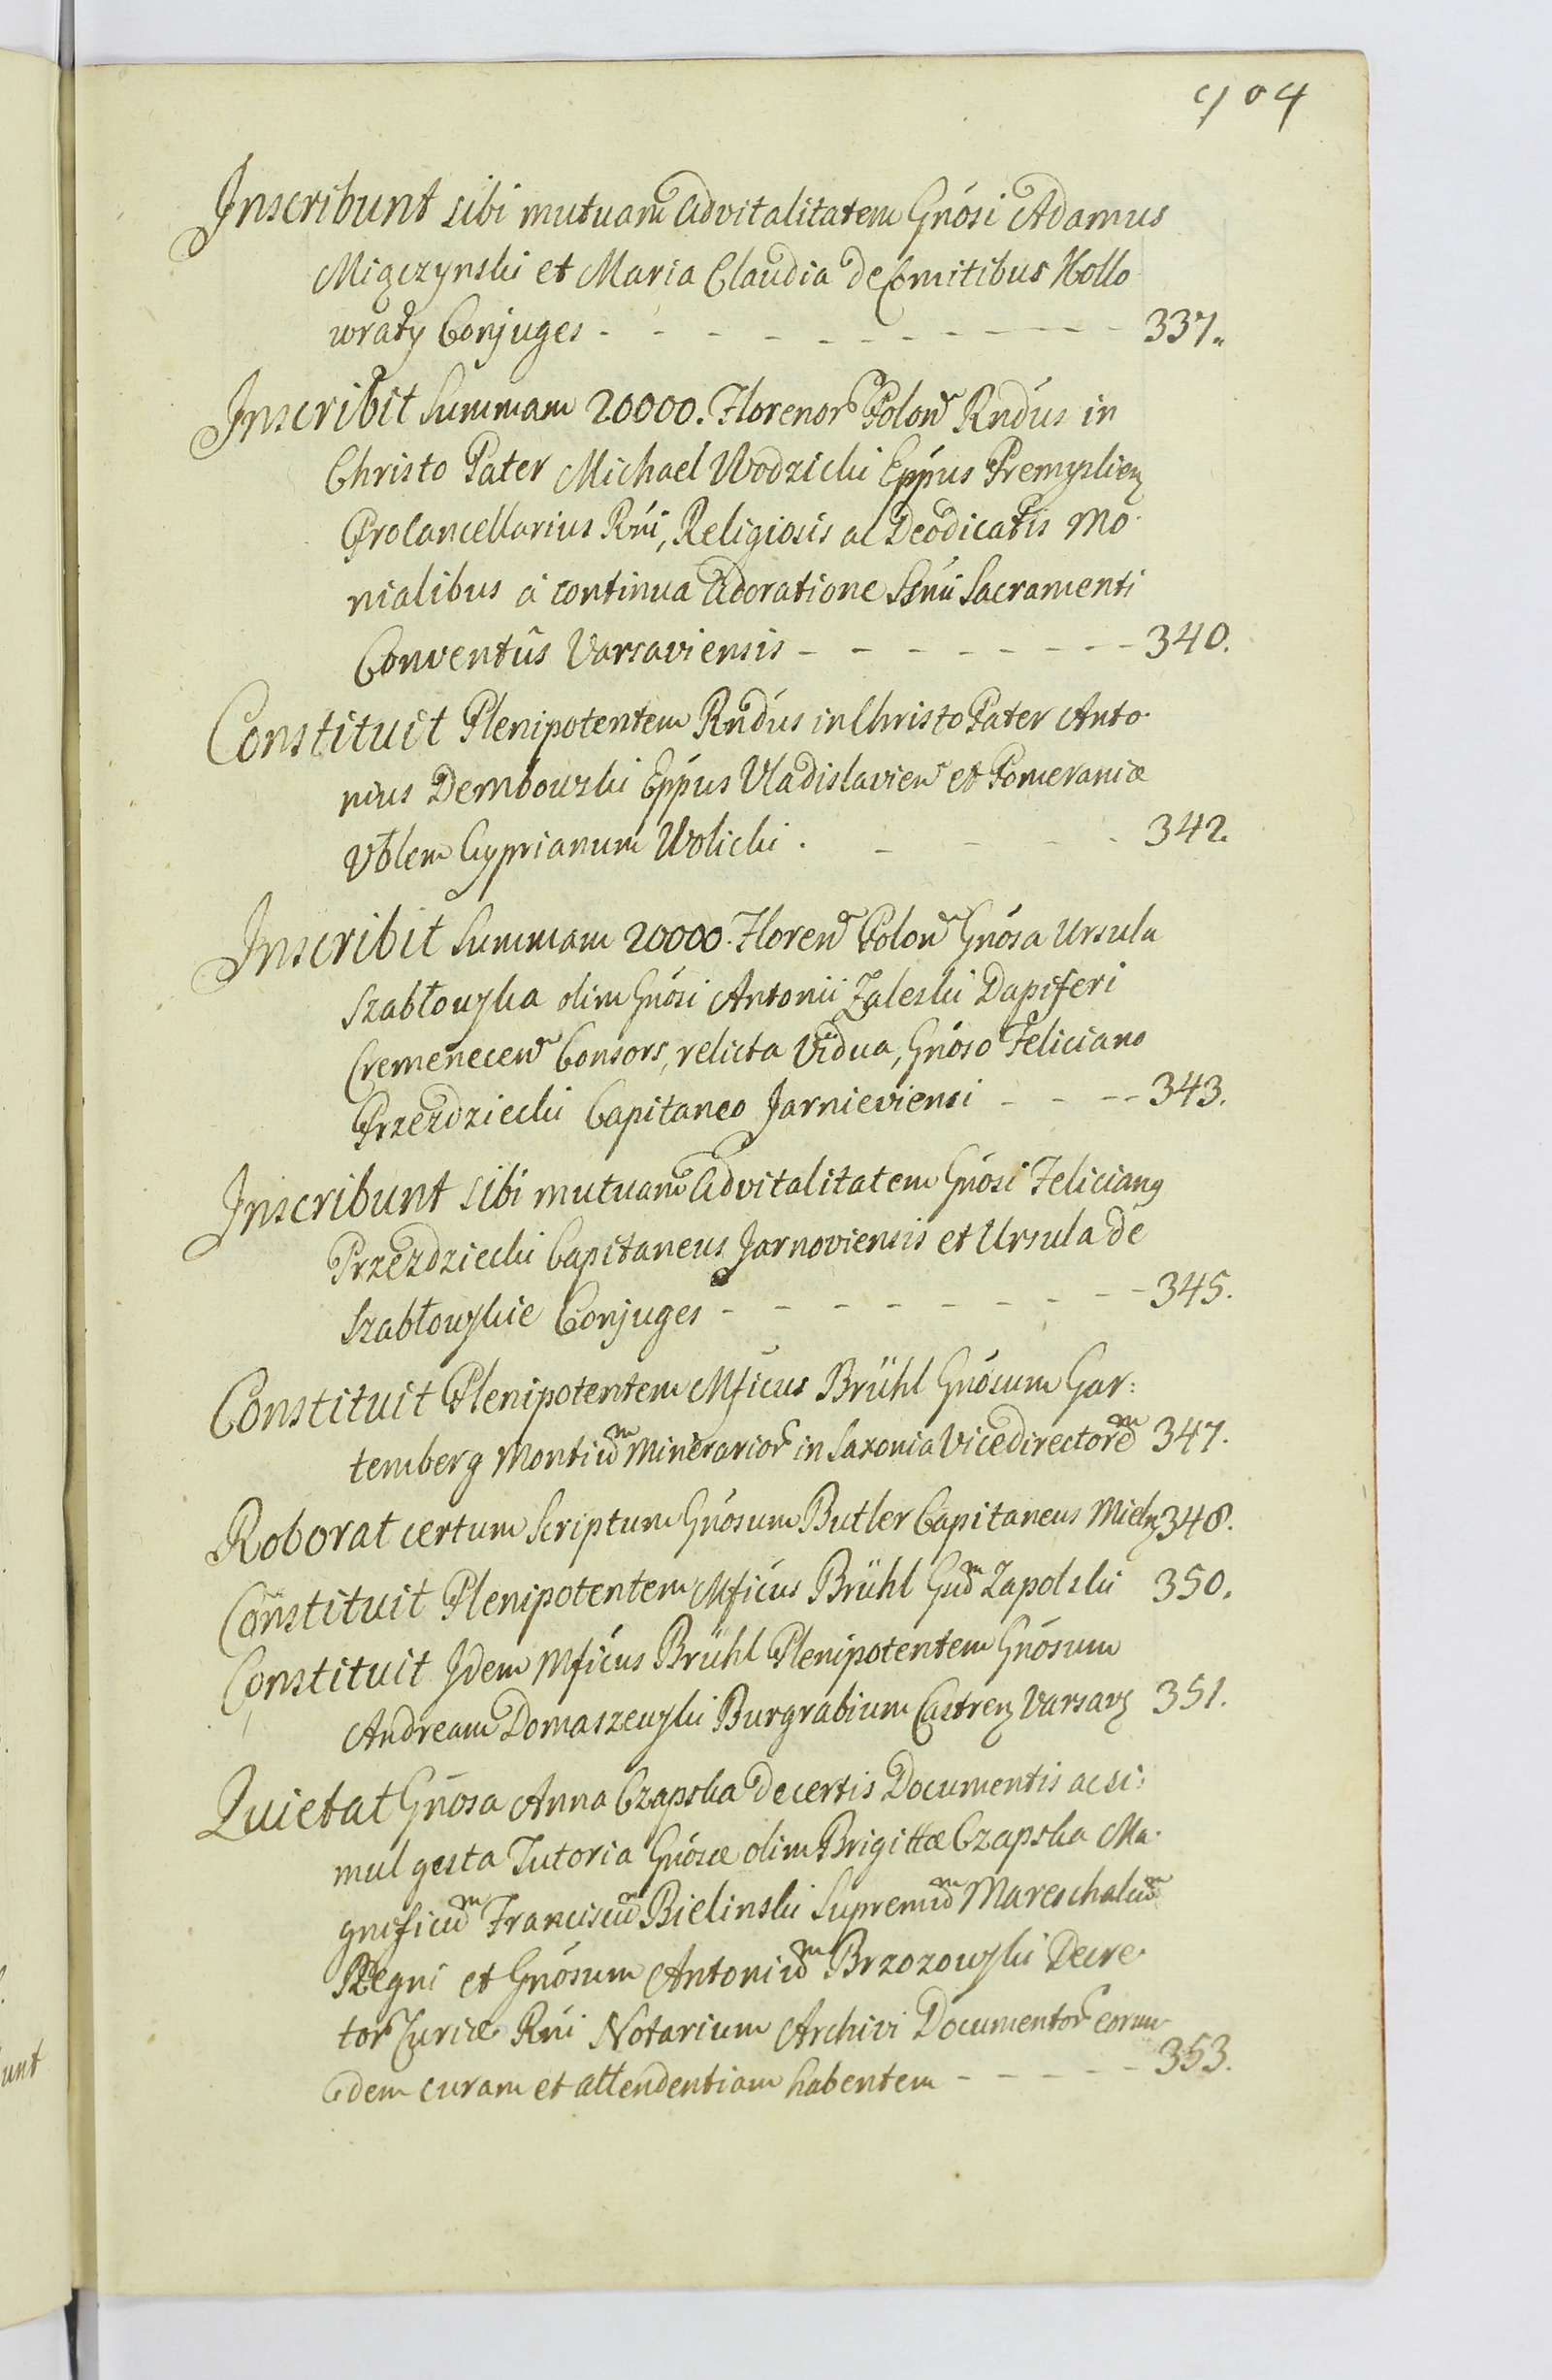 904
Inscribunt sibi mutuam Advitalitatem Gnósi Adamus
Miączynski et Maria Claudia de Comitibus Kollo
wraty Conjuges - - - - - - - - - 337.
Inscribit Summam 20000. Florenor Polon Rndus in
Christo Pater Michael Wodzicki Eppus Premyslien
Procancellarius Rni, Religiosis ac Deodicatis Mo-
nialibus á continua Adoratione Ssmi Sacramenti
Conventûs Varsaviensis - - - - - - - 340.
Constituit Plenipotentem Rndus in Christo Pater Anto-
nius Dembowski Eppus Vladislavien et Pomeraniæ
Vblem Cyprianum Wolicki . - - - - 342.
Inscribit Summam 20000. Floren Polon Gnósa Ursula
Szabłowska olim Gnósi Antonii Zaleski Dapiferi
Cremenecen Consors, relicta Vidua, Gnóso Feliciano
Przezdziecki Capitaneo Jarnieviensi - - - - 343.
Inscribunt sibi mutuam Advitalitatem Gnósi Felicianus
Przezdziecki Capitaneus Jarnoviensis et Ursula de
Szabłowskie Conjuges - - - - - - - - 345.
Constituit Plenipotentem Mficus Brühl Gnósum Gar:
temberg Montium Minerarior in Saxonia Vicedirectorem 347.
Roborat certum Scriptum Gnósum Butler Capitaneus Mieln 348.
Constituit Plenipotentem Mficus Brühl Gnum Zapolski 350.
Constituit Idem Mficus Brühl Plenipotentem Gnósum
Andream Domaszewski Burgrabium Castren Varsav 351.
Quietat Gnósa Anna Czapska de certis Documentis ac si:
mul gesta Tutoria Gnósæ olim Brigittæ Czapska Ma-
gnificum Franciscum Bielinski Supremum Mareschalcum
Regni et Gnósum Antonium Brzozowski Decre-
tor Curiæ Rni Notarium Archivi Documentor eorun-
dem curam et attendentiam habentem - - - - 353.
unt